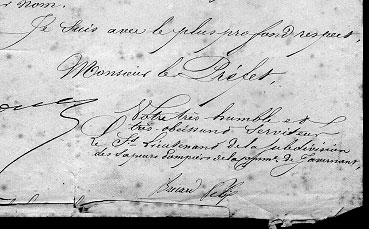 nom.
Je suis avec le plus profond respect,
Monsieur le Préfet,
Votre très humble et
très obéissant serviteur
Le St. Lieutenant de la subdivision
des Sapeurs pompiers de la